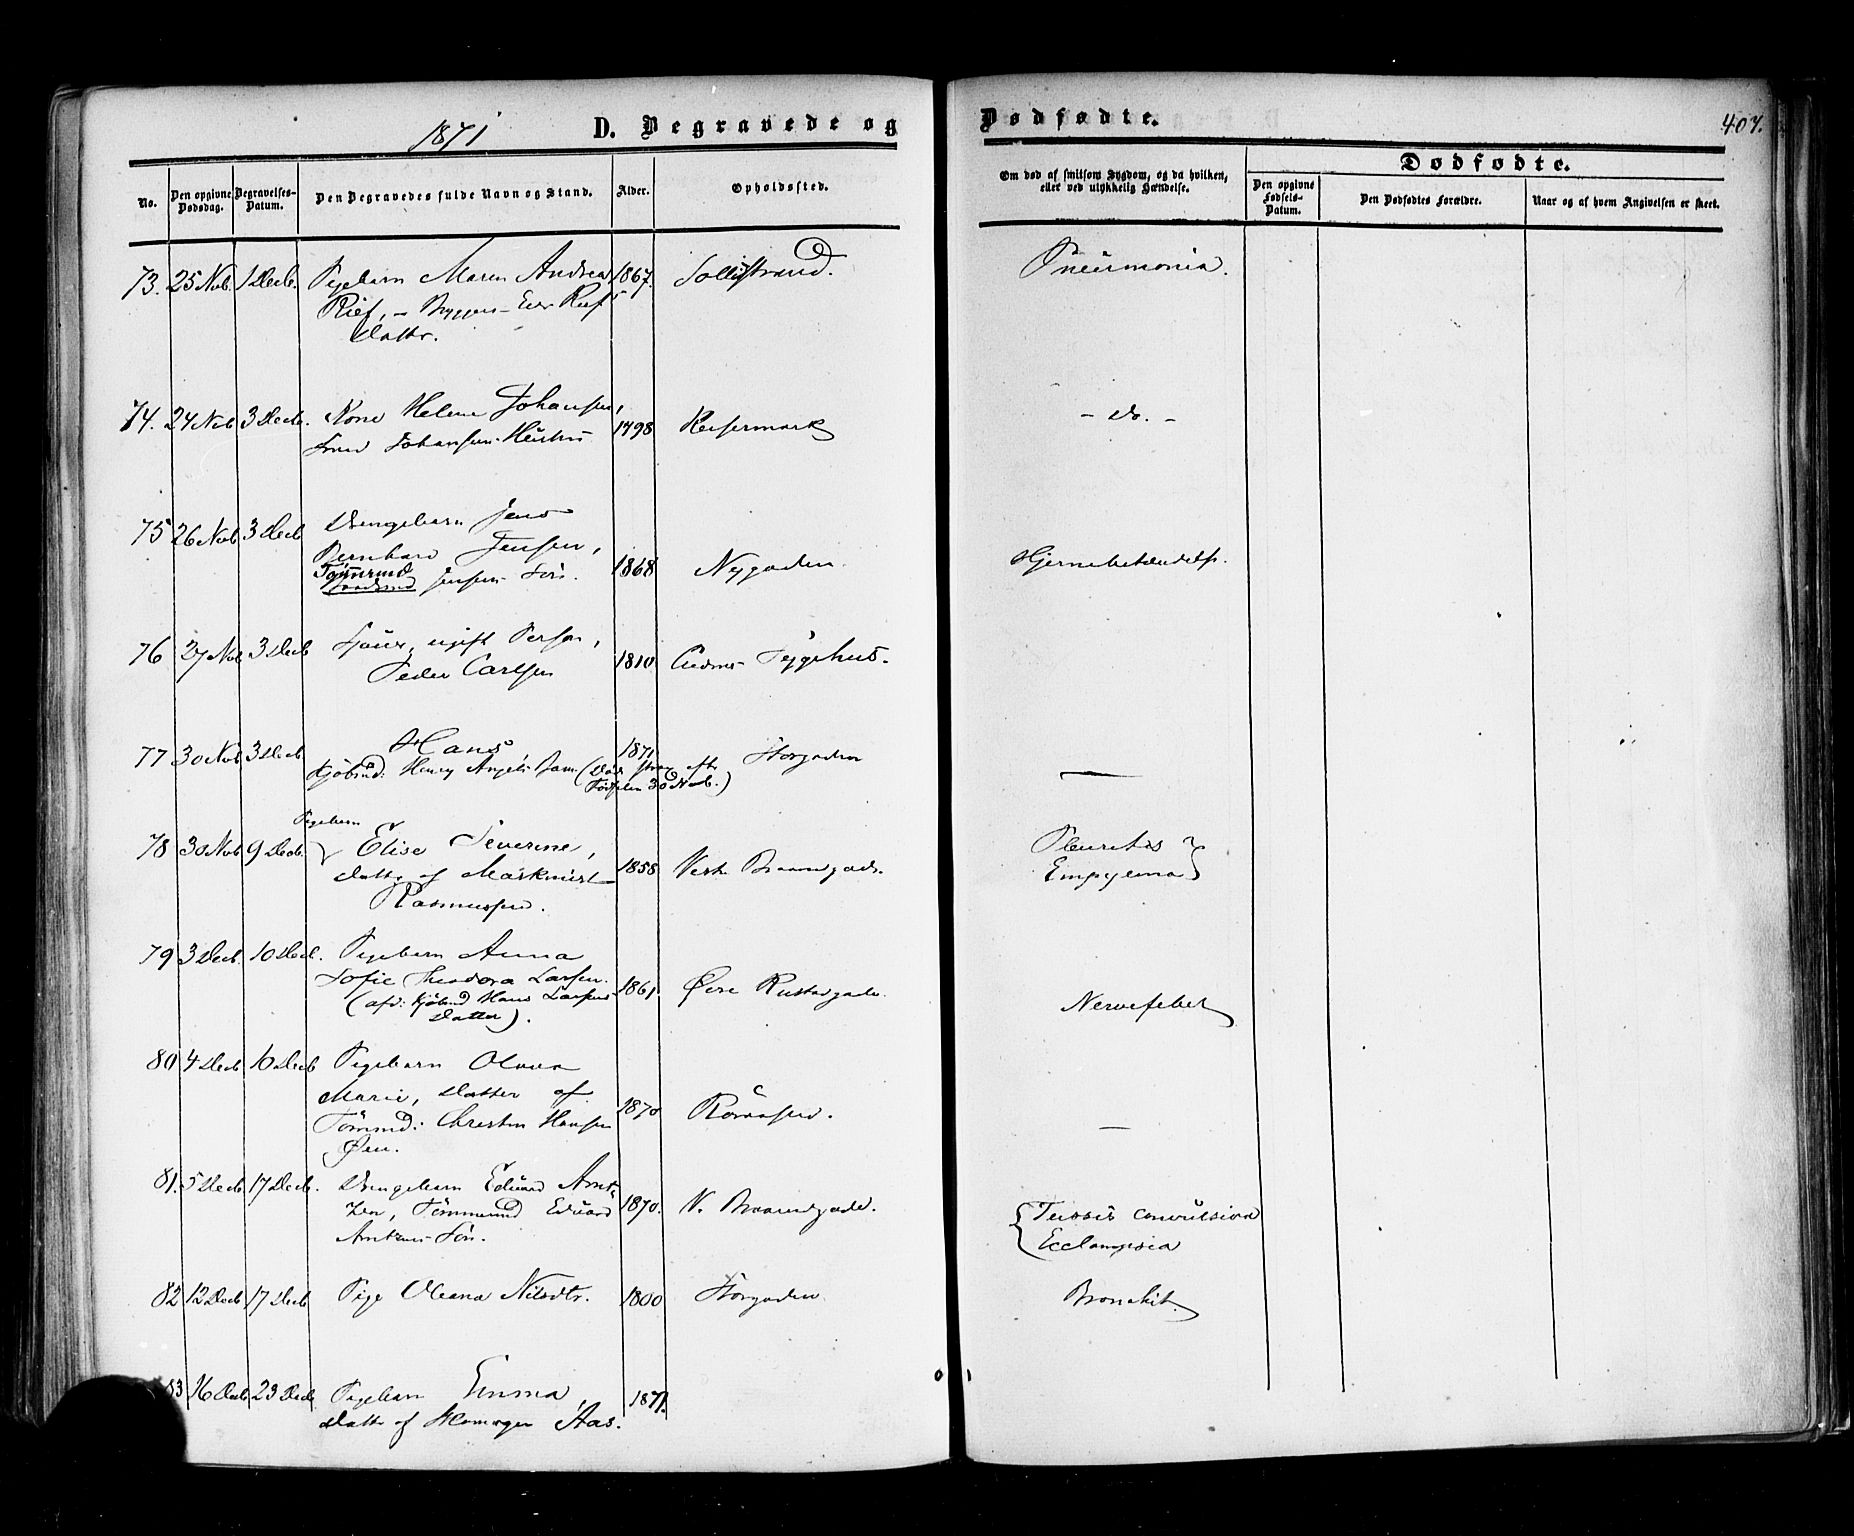 1871
D. Begravede og
Dødfødte.
407.
No.
Den opgivne Dødsdag.
Begravelses-Datum.
Den Begravedes fulde Navn og Stand.
Alder.
Opholdssted.
Om død af smitsom Sygdom, og da hvilken,
eller ved ulykkelig Hændelse.
Dødfødte.
Den opgivne Fødsels-Datum.
Den Dødfødtes Forældre.
Naar og af hvem Angivelsen er skeet.
73. 25 Nvb. 1 Decb. Pigebarn Maren Andrea 1867. Sollistrand. Pneumonia.
Rief, - Bryggers - Rief
Datter.
74. 24 Nvb 3 Decb. Kone Helene Johansen, 1798 Reisermark - do. -
Johansen Hustru
75 26 Nvb 3 Decb Drengebarn Jens
Bernhard Jensen,
Tømmermd Jensens Søn. 1868 Nygaden. Hjernebetændelse.
76 27 Nvb 3 Decb ugift Person, 1810 Sygehus.
Peder Carlsen
77 30 Nvb 3 Decb Hans 1871 Storgaden —
Kjøbmd: Henry Barn (Død strax eft.
Fødselen 30 Nvb.)
78 30 Nvb 9 Decb. Pigebarn
Elise Severine, 1858 Vestre Braanegade. Pleuritis
Datter af Maskinist Empyema
Rasmussen.
79 3 Decb. 10 Decb. Pigebarn Anna
Sofie Theodora Larsen. 1861. Øvre Nervefeber
(afd: Kjøbmd Hans Larsens
Datter).
80 4 Decb 10 Decb Pigebarn Olava
Marie, Datter af 1870
Tømmd: Christen Hansen —
Øen.
81. 5 Decb 17 Decb. Drengebarn Eduard Arnt-
zen, Tømmermd Eduard 1870. V. Braanegade. Tussis convulsiva
Arntzens Søn. Ecclampsia
82 12 Decb 17 Decb Pige Oleana Nilsdtr. 1800 Storgaden Bronchit.
83 16 Decb 23 Decb Pigebarn Emma, 1871.
Datter af Aas.